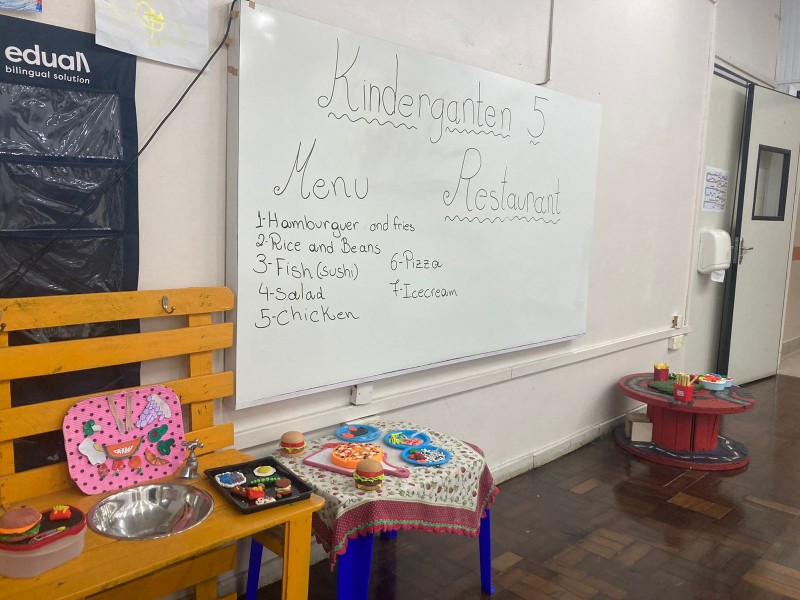 eduall
bilingual solution
Kinderganten 5
Menu Restaurant
1-Hamburguer and fries
2-Rice and Beans
3-Fish (sushi)
4-Salad
5-Chicken
6-Pizza
7-Icecream